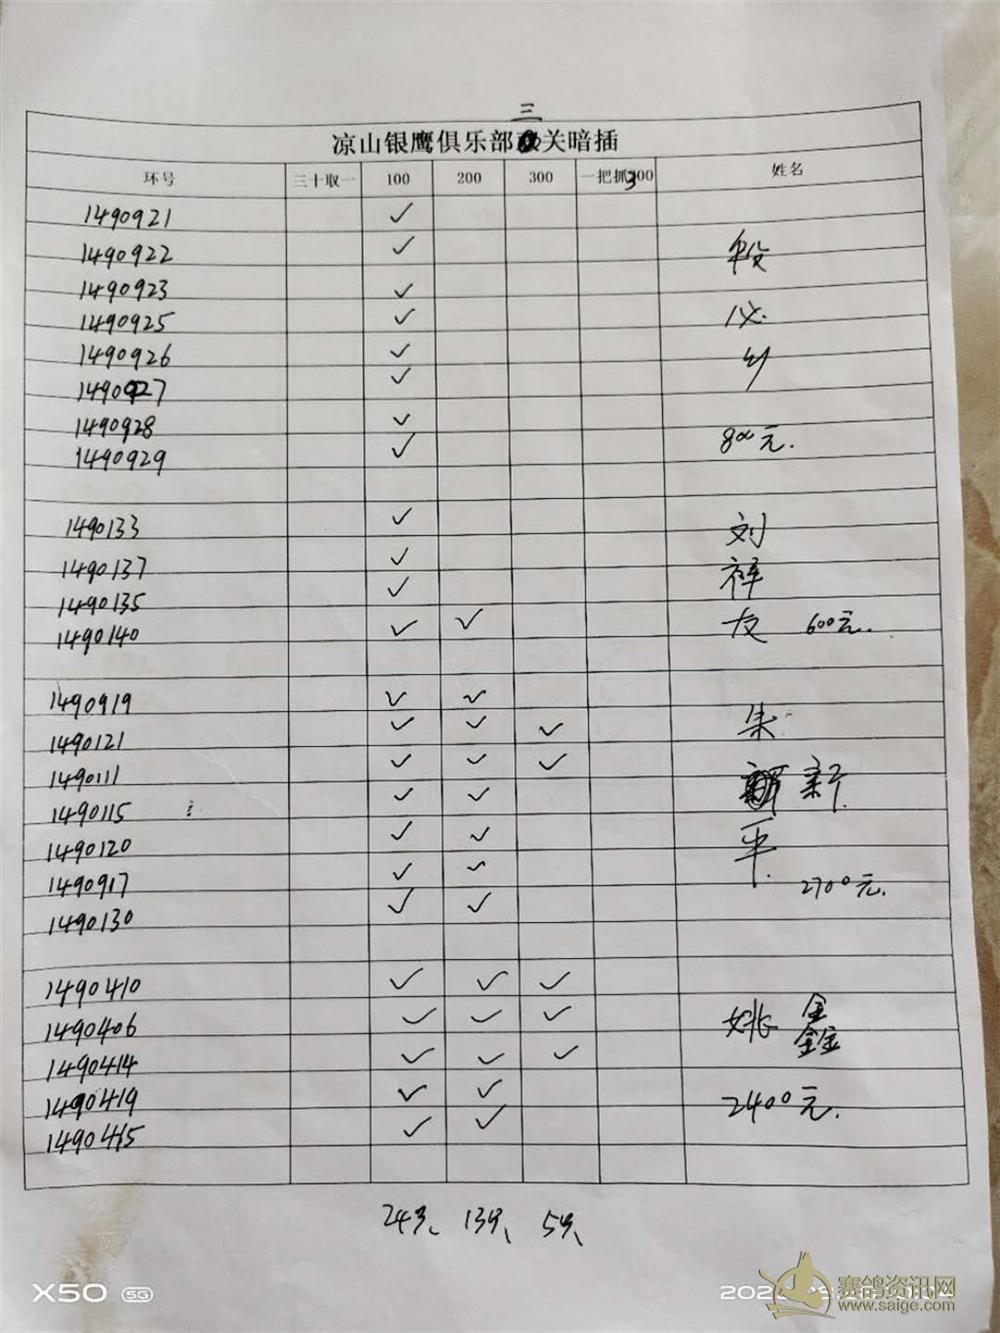 三
凉山银鹰俱乐部关暗插
环号 三十取一 100 200 300 一把抓300 姓名
1490921 ✓
1490922 ✓ 段
1490923 ✓
1490925 ✓ 必
1490926 ✓
1490927 ✓
1490928 ✓
1490929 ✓ 800元.
1490133 ✓ 刘
1490137 ✓ 祥
1490135 ✓
1490140 ✓ ✓ 友 600元.
1490919 ✓ ✓
1490121 ✓ ✓ ✓ 朱
1490111 ✓ ✓ ✓ 新
1490115 ✓ ✓
1490120 ✓ ✓ 平
1490917 ✓ ✓ 2700元.
1490130 ✓ ✓
1490410 ✓ ✓ ✓
1490406 ✓ ✓ ✓ 姚鑫
1490414 ✓ ✓ ✓
1490419 ✓ ✓ 2400元.
1490415 ✓ ✓
24羽、 13羽、 5羽、
X50 5G
赛鸽资讯网
www.saige.com